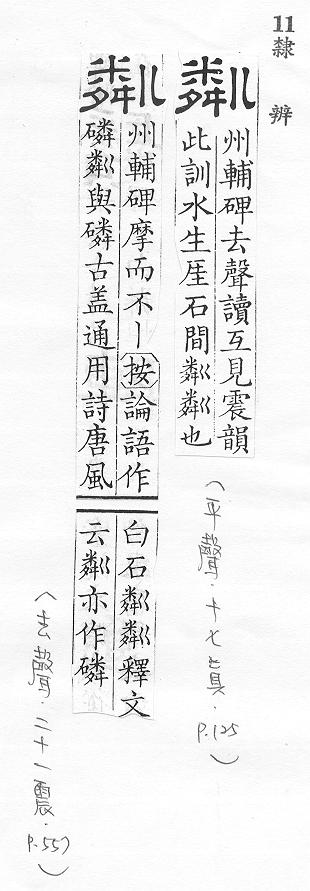 11 隸辨
粼
州輔碑去聲讀互見震韻
此訓水生厓石間粼粼也
(平聲．十七真．P.125)
粼
州輔碑摩而不丨按論語作
磷粼與磷古盖通用詩唐風
白石粼粼釋文
云粼亦作磷
(去聲．二十一震．P.557)